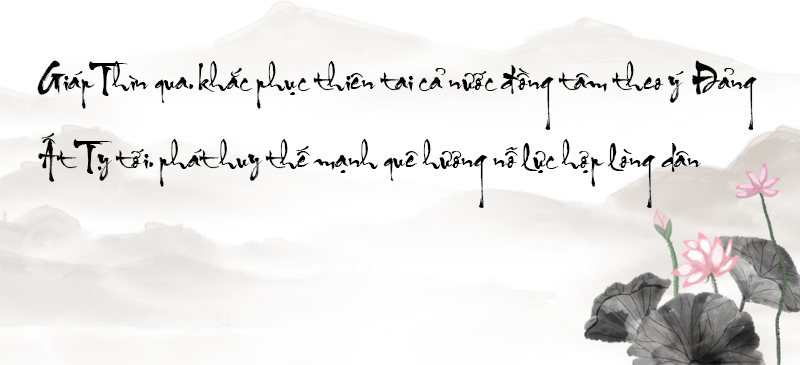 Giáp Thìn qua, khắc phục thiên tai cả nước đồng tâm theo ý Đảng
Ất Tỵ tới, phát huy thế mạnh quê hương nỗ lực hợp lòng dân